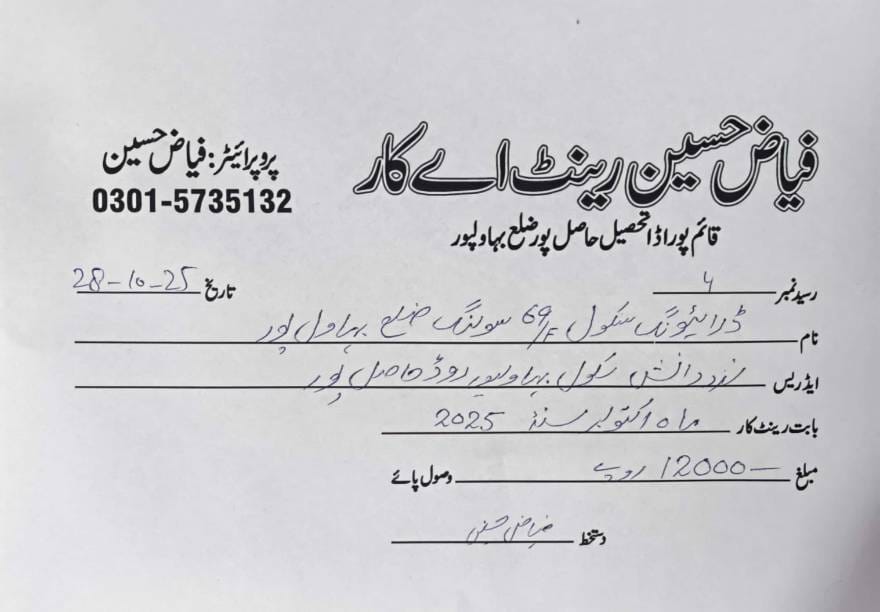 فیاض حسین رینٹ اے کار
پروپرائیٹر: فیاض حسین
0301-5735132
قائم پور اڈا تحصیل حاصل پور ضلع بہاولپور
رسید نمبر 4 تاریخ 28-10-25
نام ڈرائیونگ سکول 69/F ضلع بہاول پور
ایڈریس نزد دانش سکول بہاولپور روڈ حاصل پور
بابت رینٹ کار ماہ اکتوبر سنہ 2025
مبلغ 12000 روپے وصول پائے
دستخط فیاض حسین